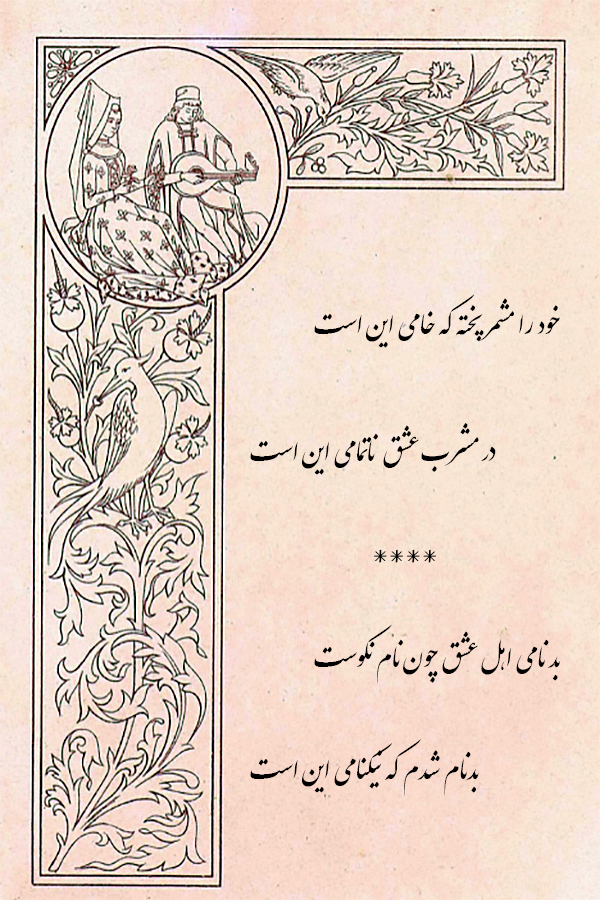 خود را مشمر پخته که خامی این است
در مشرب عشق ناتمامی این است
****
بدنامی اهل عشق چون نام نکوست
بدنام شدم که نیکنامی این است